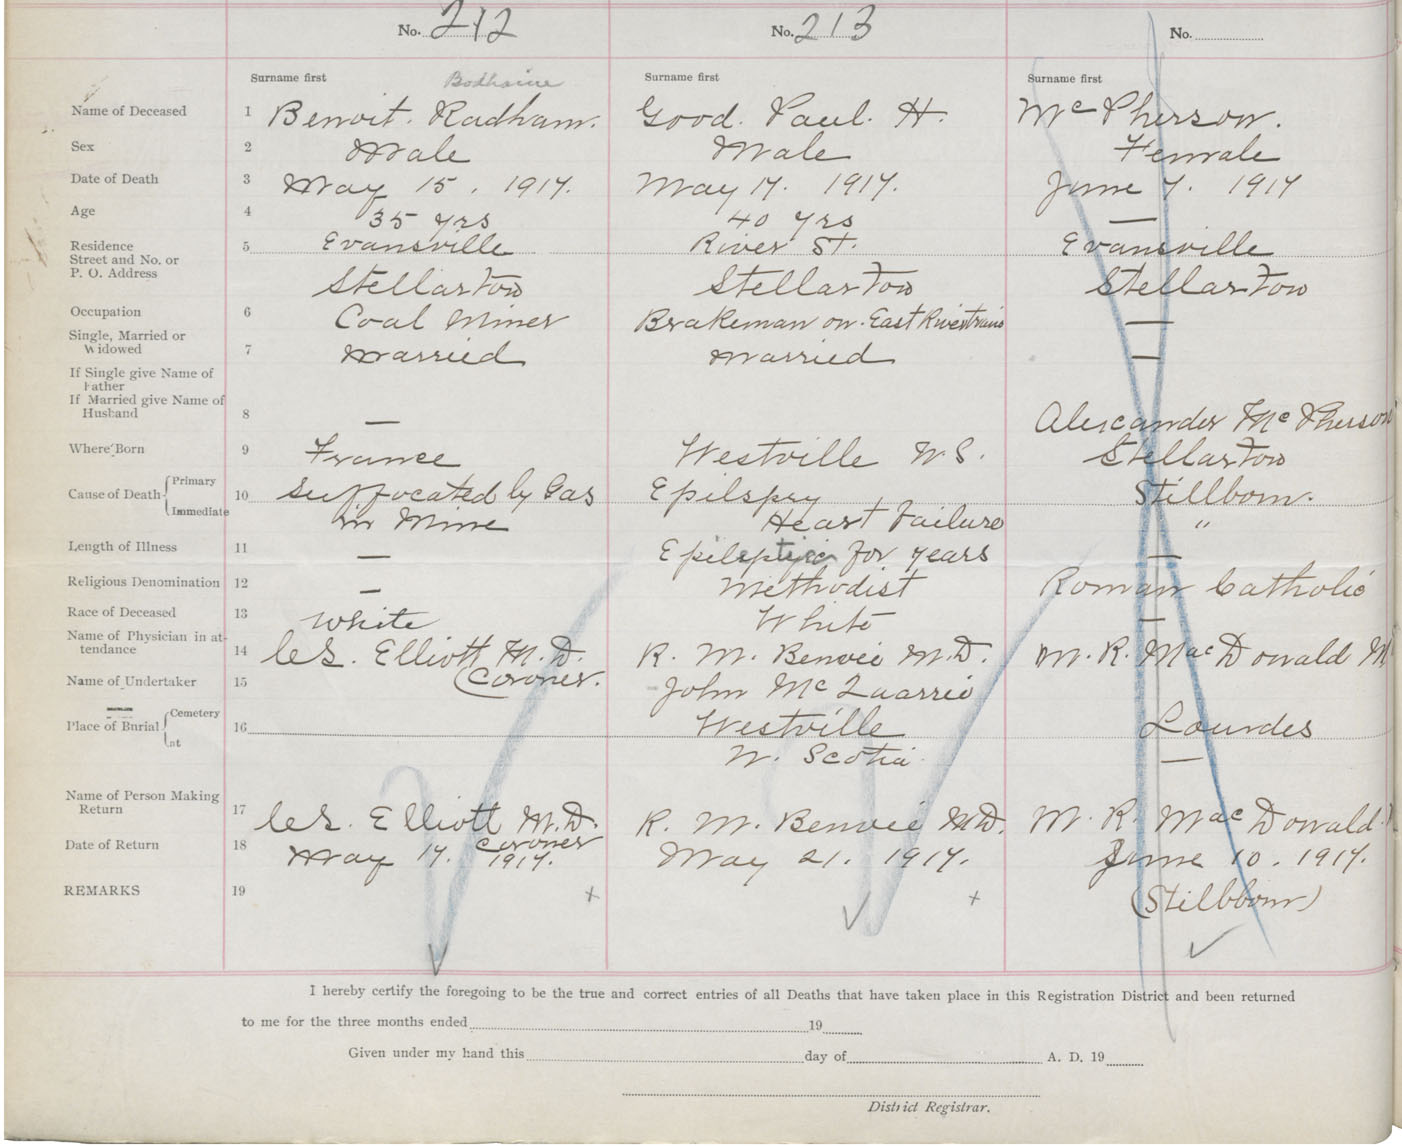 No. 212 No. 213 No.
Surname first Bodhaine Surname first Surname first
Name of Deceased 1 Benoit. Radham. Good. Paul. H. McPherson.
Sex 2 Male Male Female
Date of Death 3 May 15, 1917. May 17. 1917. June 7. 1917
Age 4 35 yrs 40 yrs —
Residence 5 Evansville River St. Evansville
Street and No. or
P. O. Address Stellarton Stellarton Stellarton
Occupation 6 Coal Miner Brakeman on East River trains —
Single, Married or
Widowed 7 Married Married —
If Single give Name of
Father
If Married give Name of
Husband 8 — Alexander McPherson
Where Born 9 France Westville N.S. Stellarton
Cause of Death Primary 10 Suffocated by Gas Epilspry Stillborn.
Immediate in Mine Heart Failure "
Length of Illness 11 — Epileptic for years —
Religious Denomination 12 — Methodist Roman Catholic
Race of Deceased 13 White White —
Name of Physician in at-
tendance 14 Elliott M.D. R. M. Benvie M.D. M. R. MacDonald M
Coroner.
Name of Undertaker 15 John McQuarrie —
Place of Burial Cemetery 16 Westville Lourdes
at N. Scotia —
Name of Person Making
Return 17 Elliott M.D. R. M. Benvie M.D. M. R. MacDonald.
Coroner
Date of Return 18 May 17. 1917. May 21. 1917. June 10. 1917.
REMARKS 19 (Stillborn)
I hereby certify the foregoing to be the true and correct entries of all Deaths that have taken place in this Registration District and been returned
to me for the three months ended 19
Given under my hand this day of A. D. 19
District Registrar.